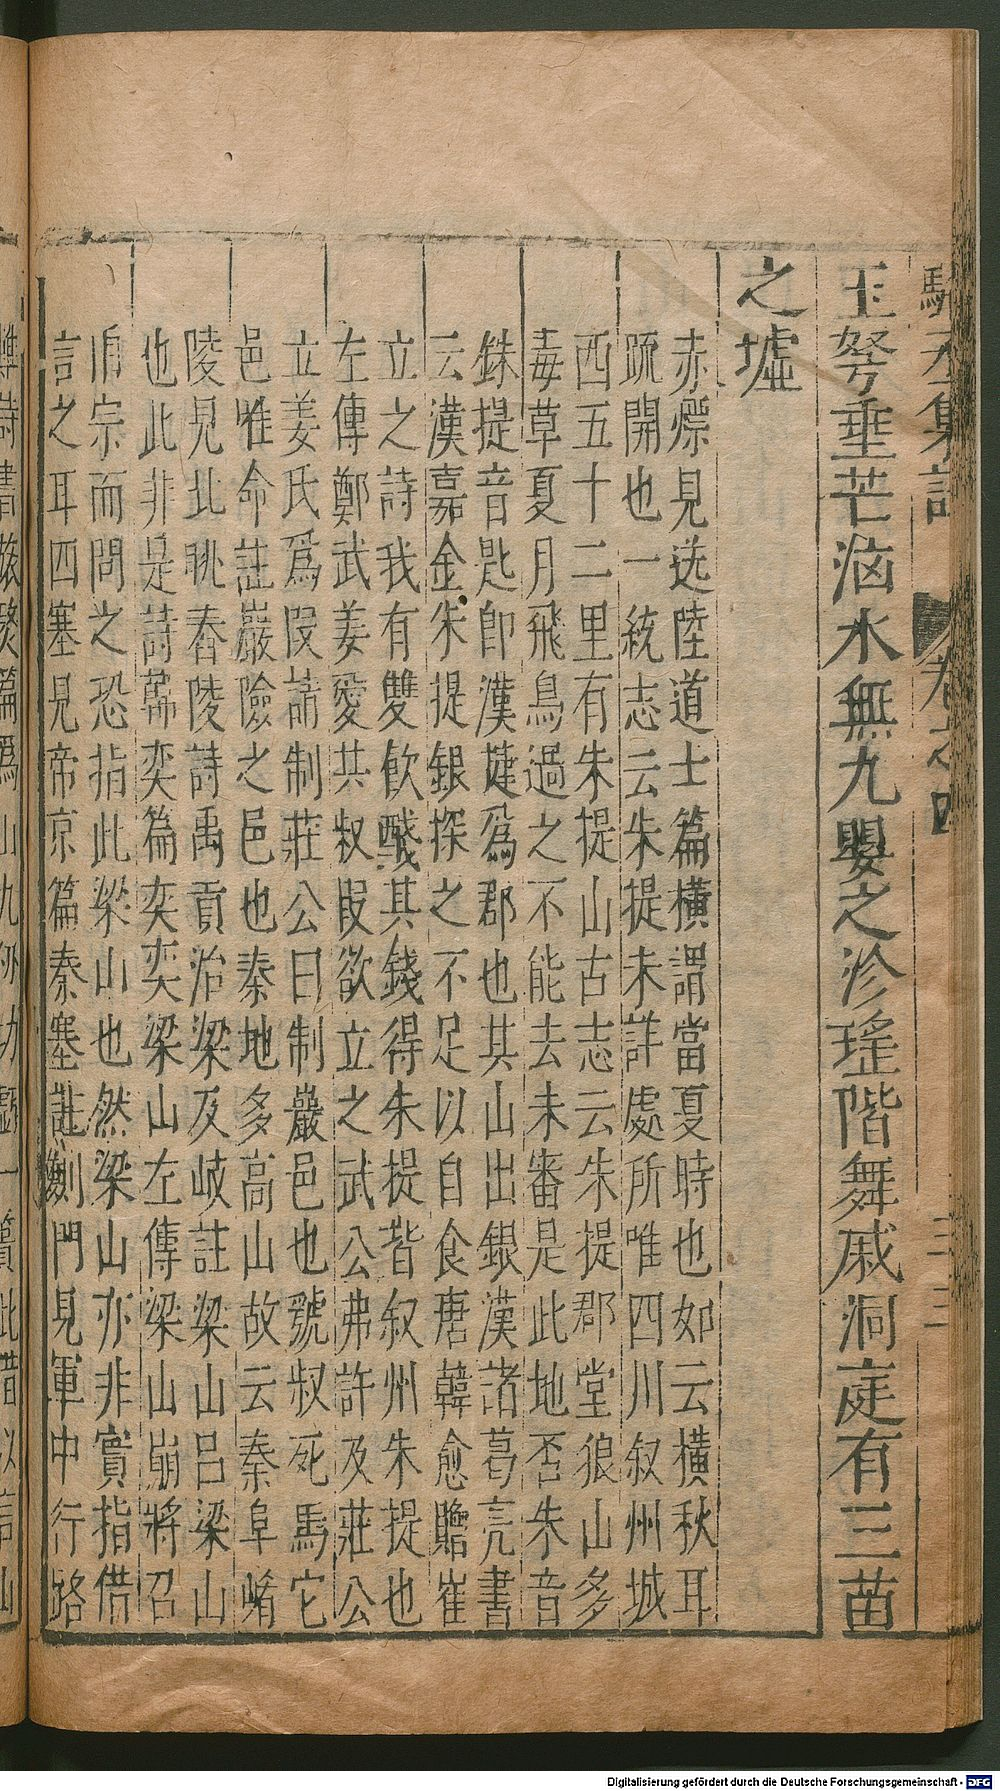 駱丞集註 卷之四
玉弩垂芒洶水無九嬰之沴瑤階舞戚洞庭有三苗
之墟
赤熛見选陸道士篇橫謂當夏時也如云橫秋耳
疏開也一統志云朱提未詳處所唯四川叙州城
西五十二里有朱提山古志云朱提郡堂狼山多
毒草夏月飛鳥過之不能去未審是此地否朱音
銖提音匙卽漢犍爲郡也其山出銀漢諸葛亮書
云漢嘉金朱提銀採之不足以自食唐韓愈贈崔
立之詩我有雙飲醆其錢得朱提皆叙州朱提也
左傳鄭武姜愛共叔段欲立之武公弗許及莊公
立姜氏爲段請制莊公曰制巖邑也虢叔死焉它
邑唯命註巖險之邑也秦地多高山故云秦阜崤
陵見北眺舂陵詩禹貢治梁及岐註梁山呂梁山
也此非是詩韓奕篇奕奕梁山左傳梁山崩將召
伯宗而問之恐指此梁山也然梁山亦非實指借
言之耳四塞見帝京篇秦塞註劍門見軍中行路
Digitalisierung gefördert durch die Deutsche Forschungsgemeinschaft - DFG